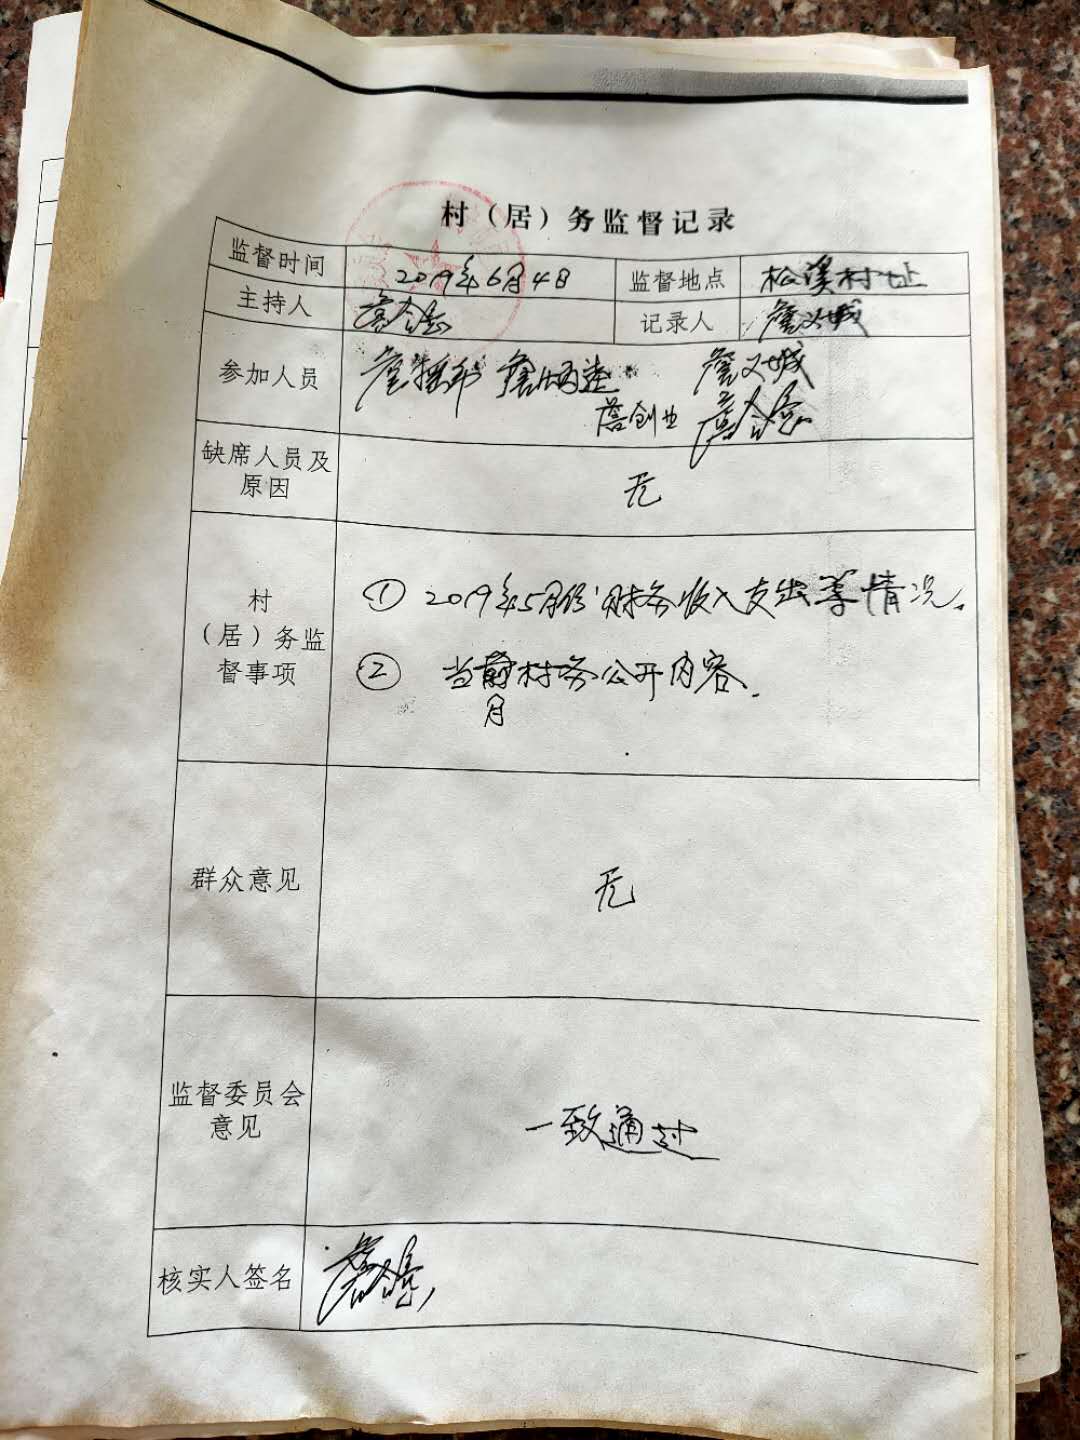 村（居）务监督记录
监督时间 2019年6月4日 监督地点 松溪村址
主持人 记录人 詹义城
参加人员 詹义城
詹创业
缺席人员及
原因 无
村
（居）务监
督事项
① 2019年5月份财务收入支出等情况。
② 当前村务公开内容.
月
群众意见 无
监督委员会
意见 一致通过
核实人签名